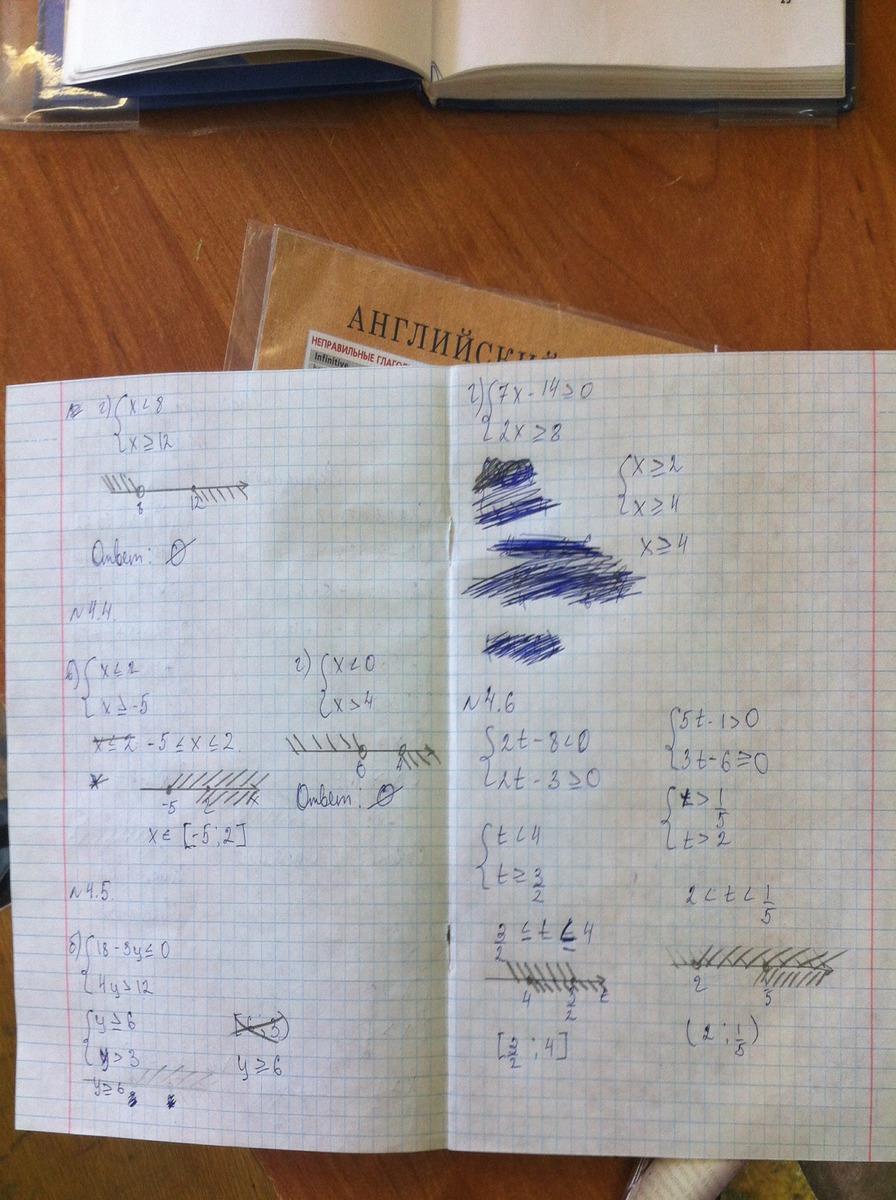 АНГЛИЙСКИЙ
НЕПРАВИЛЬНЫЕ ГЛАГОЛ
Infinitive
г) { x < 8
x ≥ 12
8 12
Ответ: ∅
N 4.4.
{ x ≤ 2
x ≥ -5
x ≤ 2 -5 ≤ x ≤ 2.
-5 2 x
x ∈ [-5; 2]
г) { x < 0
x > 4
0 4
Ответ: ∅
N 4.5.
б) { 18 - 3y ≤ 0
4y > 12
{ y ≥ 6
y > 3
y ≥ 6
y ≥ 6
г) { 7x - 14 ≥ 0
2x ≥ 8
{ x ≥ 2
x ≥ 4
x ≥ 4
N 4.6
{ 2t - 8 < 0
2t - 3 ≥ 0
{ t < 4
t ≥ 3/2
3/2 ≤ t ≤ 4
4 3/2 t
[3/2; 4]
{ 5t - 1 > 0
3t - 6 ≥ 0
{ t > 1/5
t > 2
2 < t < 1/5
2
(2; 1/5)